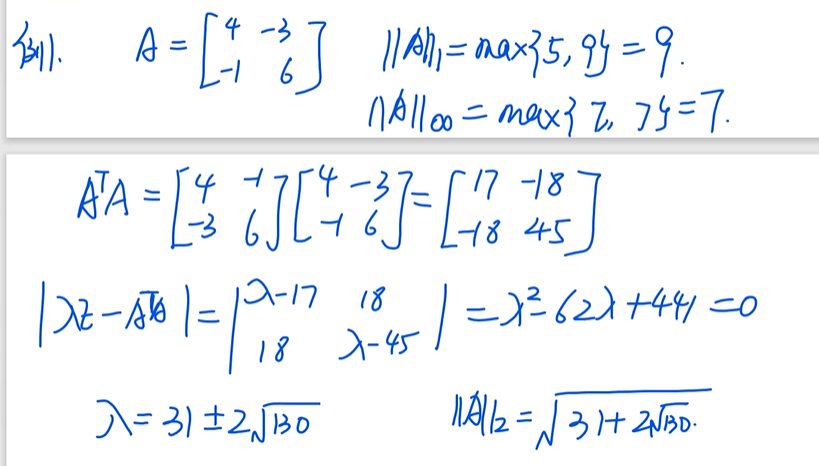 例1. A = [4 -3; -1 6] ||A||₁ = max{5, 9} = 9.
||A||∞ = max{7, 7} = 7.
AᵀA = [4 -1; -3 6][4 -3; -1 6] = [17 -18; -18 45]
|λE - AᵀA| = |λ-17 18; 18 λ-45| = λ² - 62λ + 441 = 0
λ = 31 ± 2√130 ||A||₂ = √(31 + 2√130).